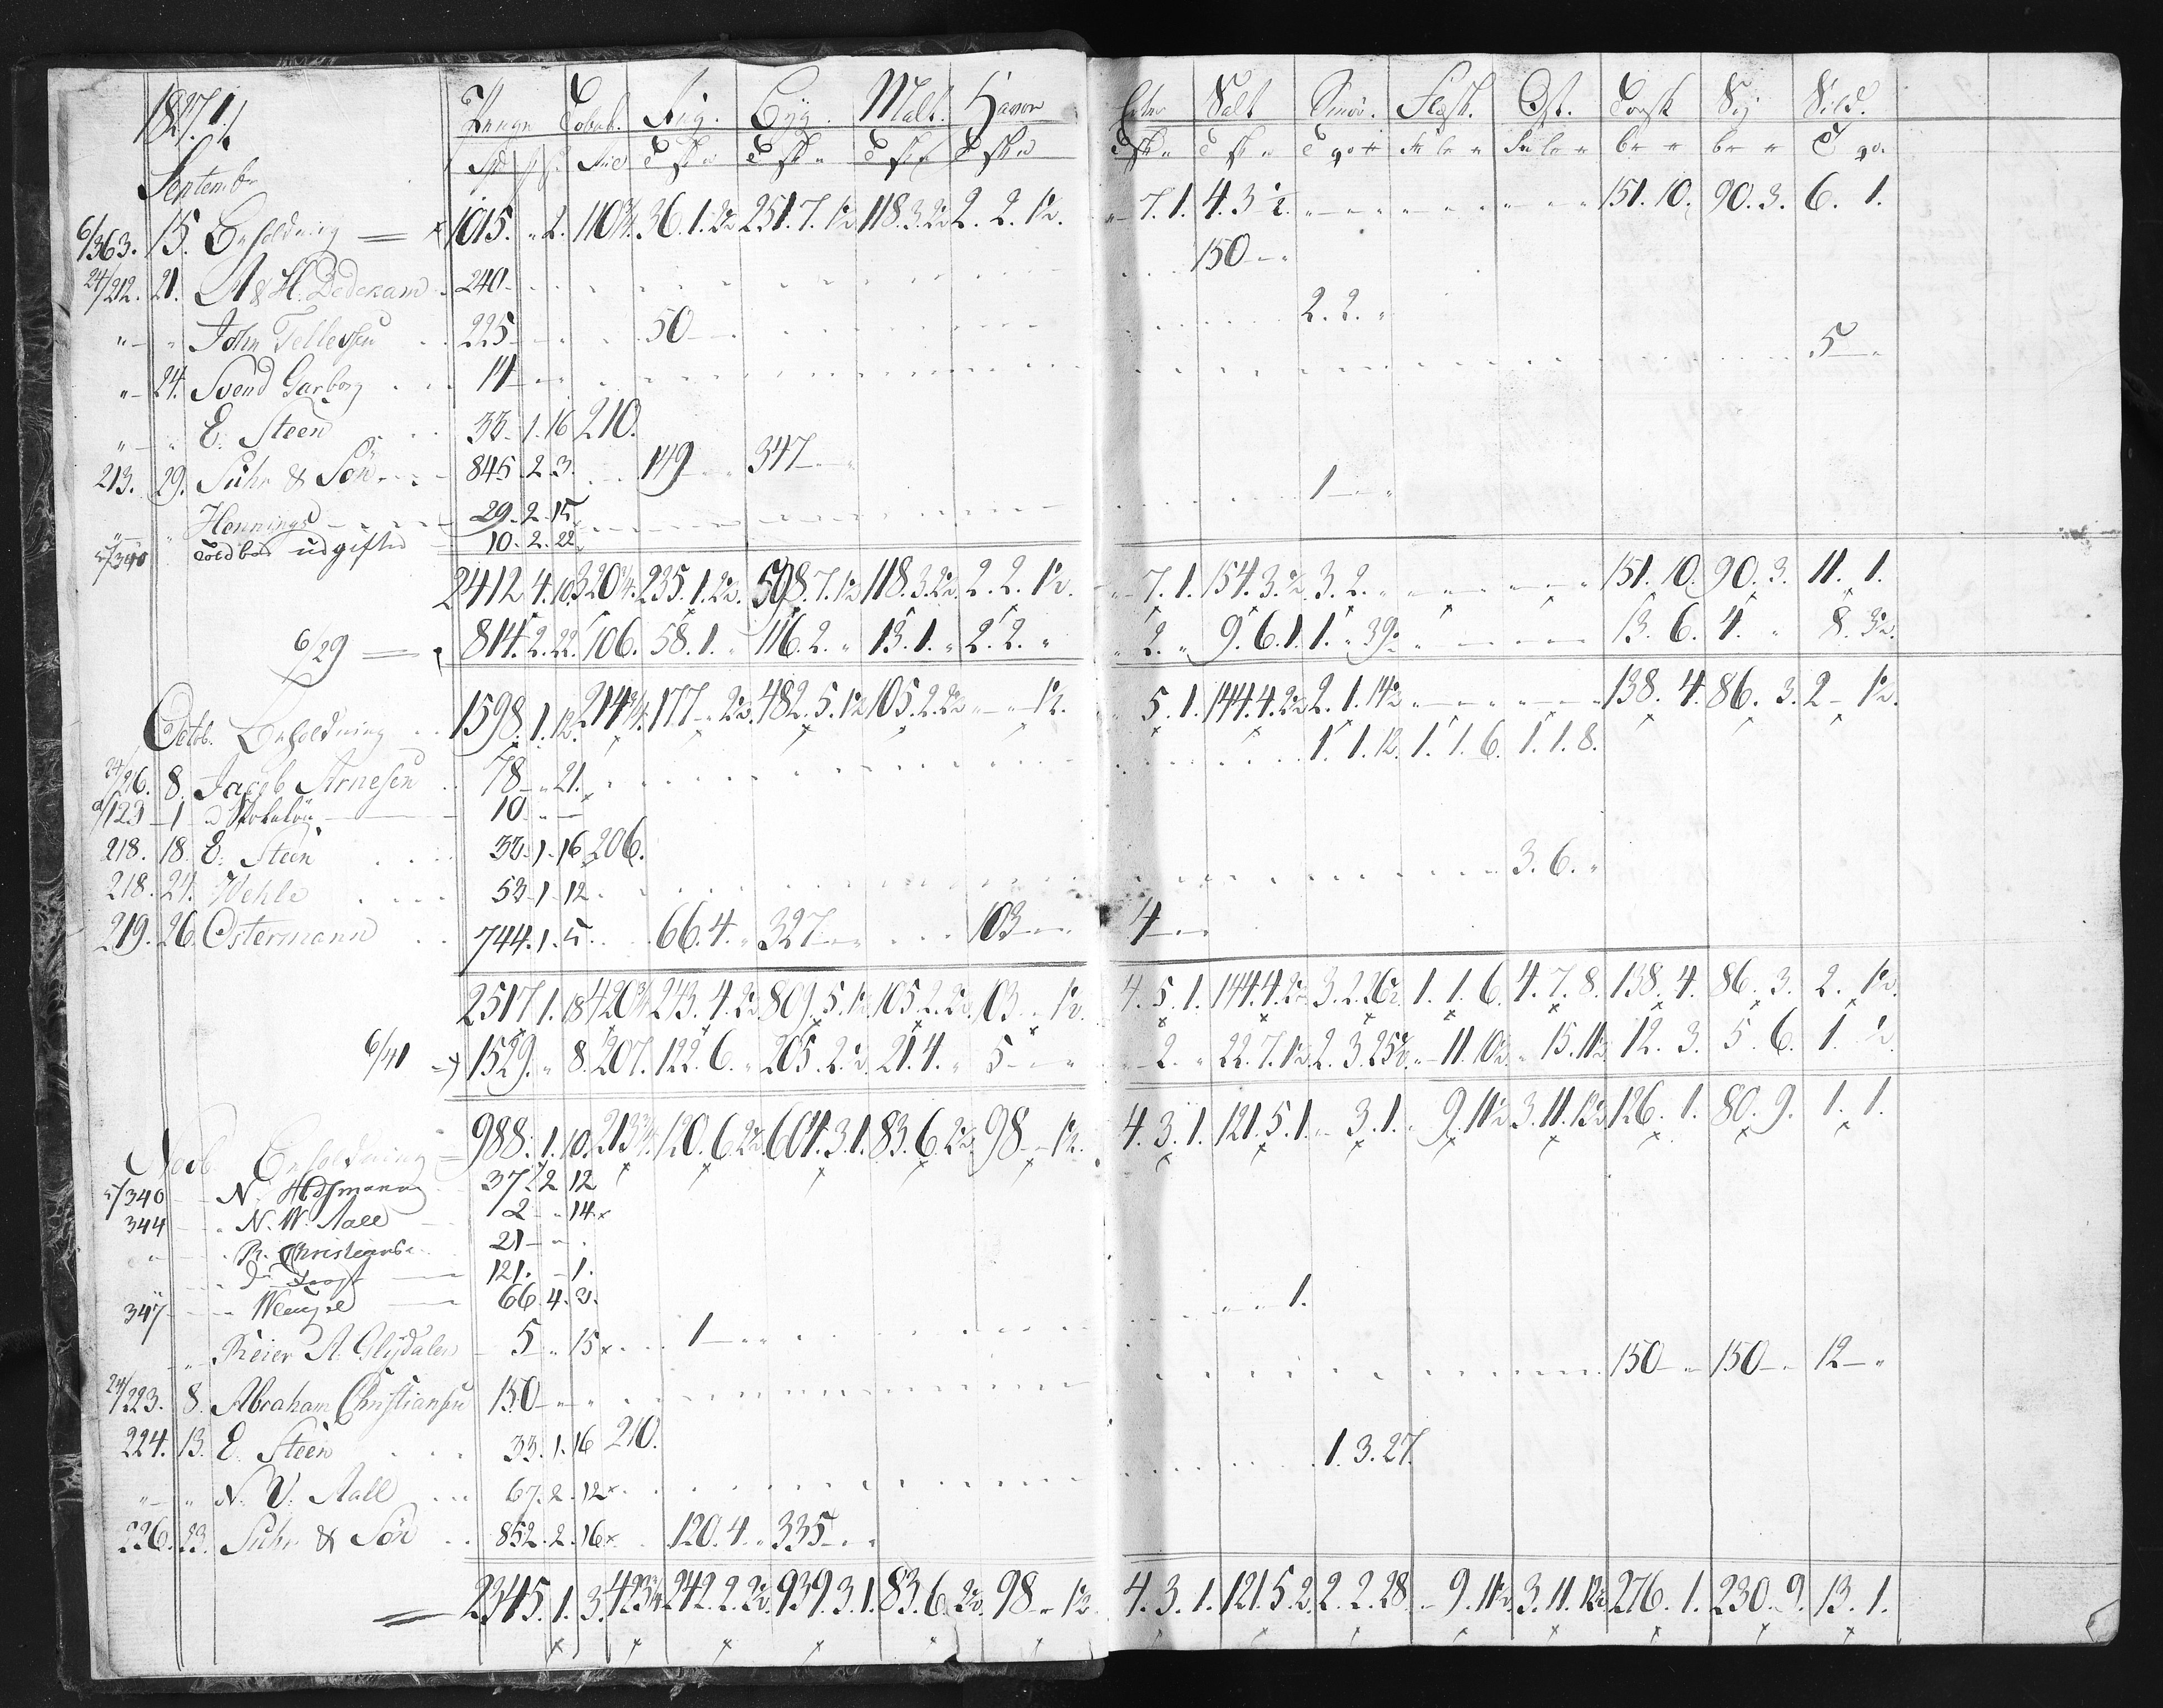 1827.
Penge Tobak. Rug. Byg. Malt. Havre Erter Salt Smör. Flesk. Ost. Torsk Sej Sild.
Septembr
6/363. 15. Beholdning 1015. " 2. 110¾. 36. 1. 2½ 251. 7. 1½ 118. 3. 2½ 2. 2. 1½. " 7. 1. 4. 3 ½. 151. 10. 90. 3. 6. 1.
24/212. 21. A & H. Dedekam 240 150
" " John Tellefsen 225 50 2. 2. "
" 24. Svend Garborg 14 5
" " E. Steen 33. 1. 16 210.
213. 29. Suhr & Sön 845. 2. 3. 149 347
" Hennings 29. 2. 15. 1
5/340 Toldbod udgifter 10. 2. 22
2412 4. 10. 320¾. 235. 1. 2½. 598. 7. 1½ 118. 3. 2½. 2. 2. 1½. 7. 1. 154. 3. ½. 3. 2. " 151. 10. 90. 3. 11. 1.
6/29 814. 2. 22. 106. 58. 1. " 116. 2. " 13. 1. " 2. 2. " " 2. " 9. 6. 1. 1. " 39 13. 6. 4. " 8. 3½.
Octob. Beholdning 1598. 1. 12. 214¾. 177 " 2½. 482. 5. 1½ 105. 2. 2½ " " 1½. " 5. 1. 144. 4. 2½ 2. 1. 14½ 138. 4. 86. 3. 2 " 1½.
24/216. 8. Jacob Arnesen 78 " 21. 1. 1. 12. 1. 1. 6. 1. 1. 8.
/123 1 10
218. 18. E. Steen 33. 1. 16 206.
218. 24. Wehle 53. 1. 12 3. 6. "
219. 26. Ostermann 744. 1. 5. 66. 4. " 327 103 4
2517. 1. 18 420¾ 243. 4. 2½ 809. 5. 1½ 105. 2. 2½. 103 " 1½. 4. 5. 1. 144. 4. 2½ 3. 2. 26½ 1. 1. 6. 4. 7. 8. 138. 4. 86. 3. 2. 1½.
6/41 1529. " 8. 207. 122. 6. " 205. 2. ½. 21. 4. " 5 " 2. " 22. 7. 1½. 2. 3. 25½. " 11. 10½. " 15. 11½ 12. 3. 5. 6. 1. ½.
Novb Beholdning 988. 1. 10. 213¾. 120. 6. 2½. 604. 3. 1. 83. 6. 2½. 98 " 1½. 4. 3. 1. 121. 5. 1. " 3. 1. " 9. 11½ 3. 11. 12½ 126. 1. 80. 9. 1. 1.
5/340 N. 37. 2 12
344 N. W. Aall 2 " 14
" R. Christians 21
121. " 1.
347 66. 4. 3. 1.
" Reier A. Glijdalen 5 " 15 1
24/223. 8. Abraham Christiansen 150 150 150 12
224. 13. E. Steen 33. 1. 16 210.
" " N. V. Aall 67. 2. 12 1. 3. 27.
226. 23. Suhr & Sön 852. 2. 16 120. 4. " 335
2345. 1. 3. 423¾ 242. 2. 2½. 939. 3. 1. 83. 6. 2½. 98 " 1½. 4. 3. 1. 121. 5. 2. 2. 2. 28. " 9. 11½. 3. 11. 12½ 276. 1. 230. 9. 13. 1.